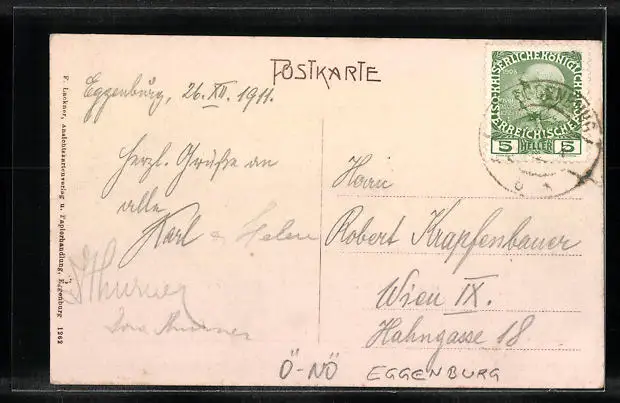 POSTKARTE
Eggenburg, 26. XII. 1911.
Herzl. Grüße an
alle
Karl & Helene
Thurner
Thurner
Herrn
Robert Krapfenbauer
Wien IX.
Hahngasse 18
Ö-NÖ EGGENBURG
F. Lackner, Ansichtskartenverlag u. Papierhandlung, Eggenburg 1962
KAISERLICHEKÖNIGLICHE
ÖSTERREICHISCHE
1908
5 HELLER 5
EGGENBURG